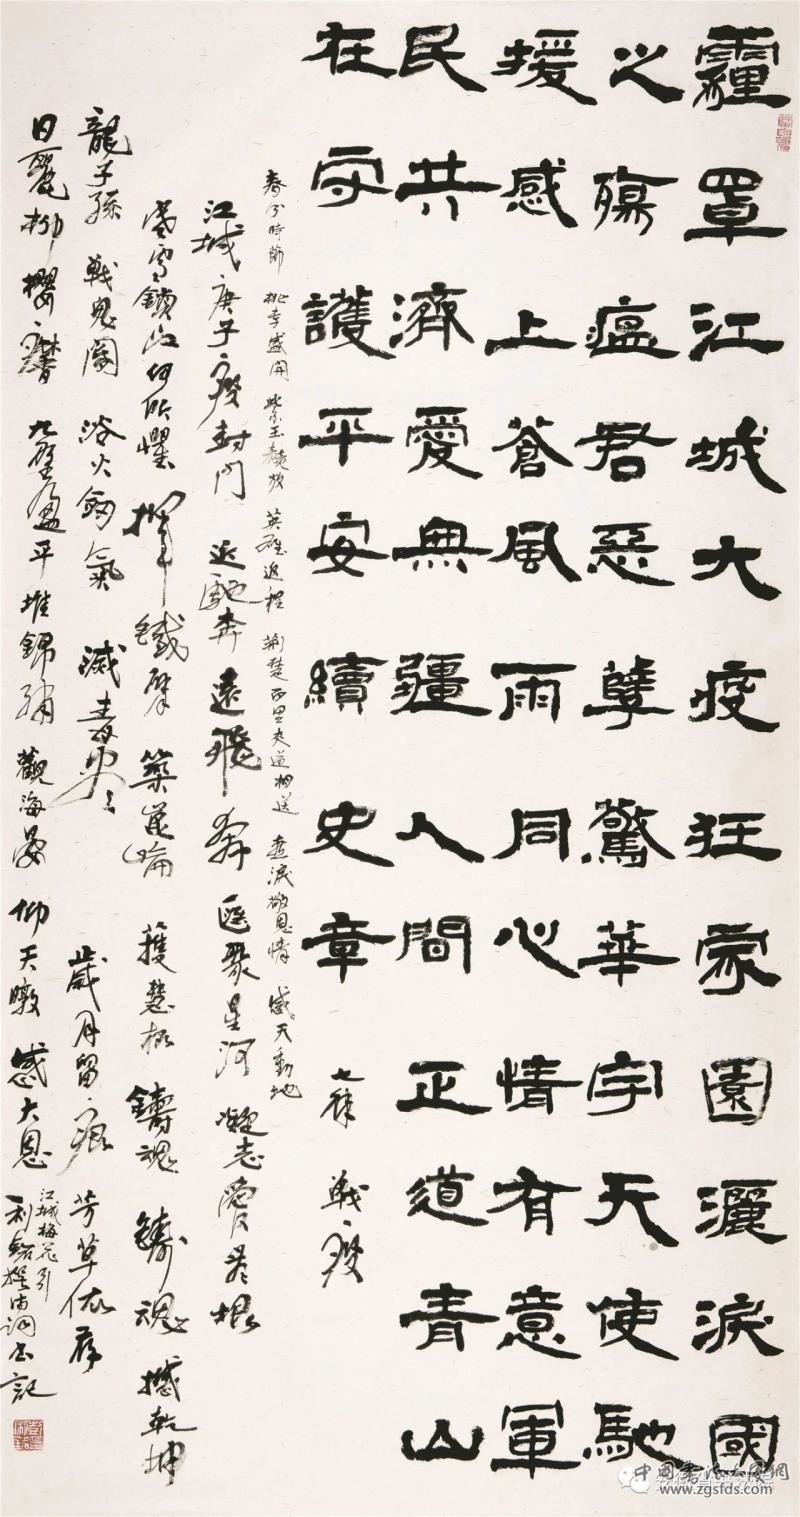 霾罩江城大疫狂家園灑淚國
之殤瘟君惡孽驚華宇天使馳
援感上蒼風雨同心情有意軍
民共濟愛無疆人間正道青山
在守護平安續史章 七律 戰疫
春分時節 桃李盛開 紫玉競放 英雄返程 荊楚百里夹道相送 淚敬恩情 感天動地
江城庚子疫封门 近馳奔 遠飛奔 匯聚星河 凝志愛是根
寒雪鎖江何所懼 揮鐵臂 築崑崙 護慧根 鑄魂 鑄魂 撼乾坤
龍子孫 戰鬼閽 浴火劍氣 滅毒 歲月留痕 芳草依存
日麗柳櫻馨 盈平堆錦繡 觀海晏 仰天暾 感大恩
江城梅花引
撰詩詞書記
www.zgsfds.com